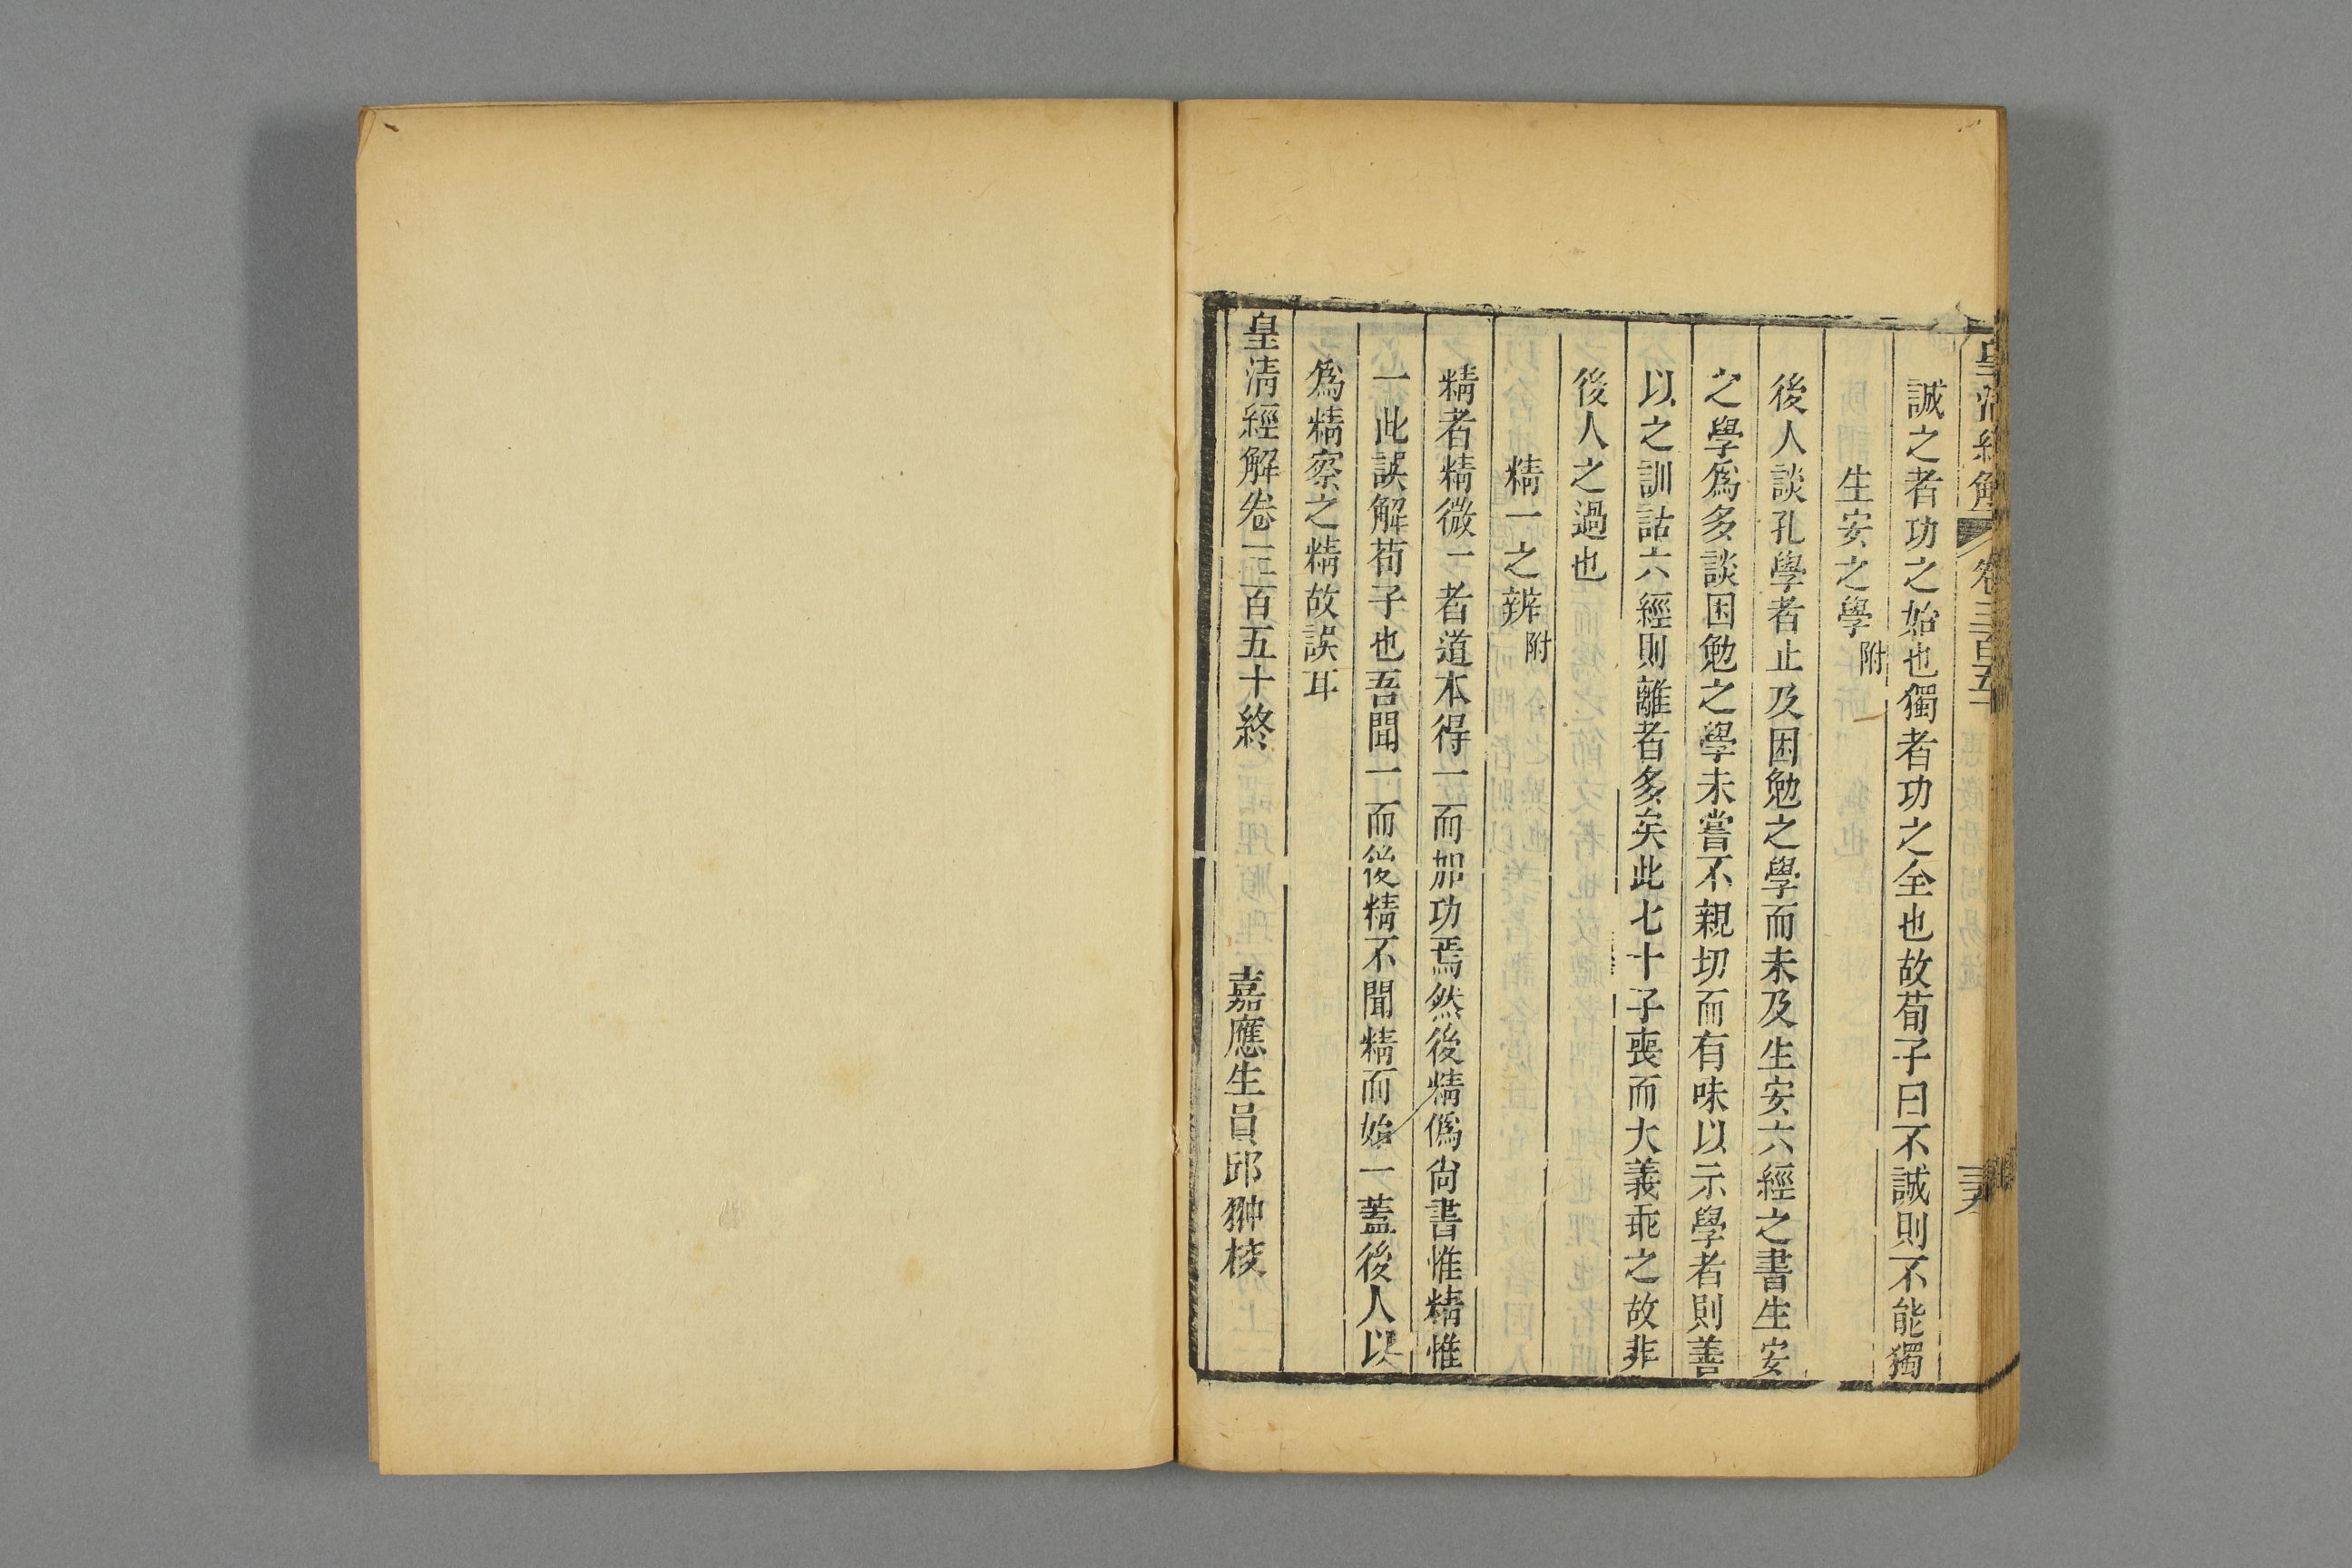 皇清經解 卷三百五十
誠之者功之始也獨者功之全也故荀子曰不誠則不能獨
生安之學附
後人談孔學者止及困勉之學而未及生安六經之書生安
之學爲多談困勉之學未嘗不親切而有味以示學者則善
以之訓詁六經則離者多矣此七十子喪而大義乖之故非
後人之過也
精一之辨附
精者精微一者道本得一而加功焉然後精僞尚書惟精惟
一此誤解荀子也吾聞一而後精不聞精而始一蓋後人以
爲精察之精故誤耳
皇清經解卷三百五十終
嘉應生員邱翀校